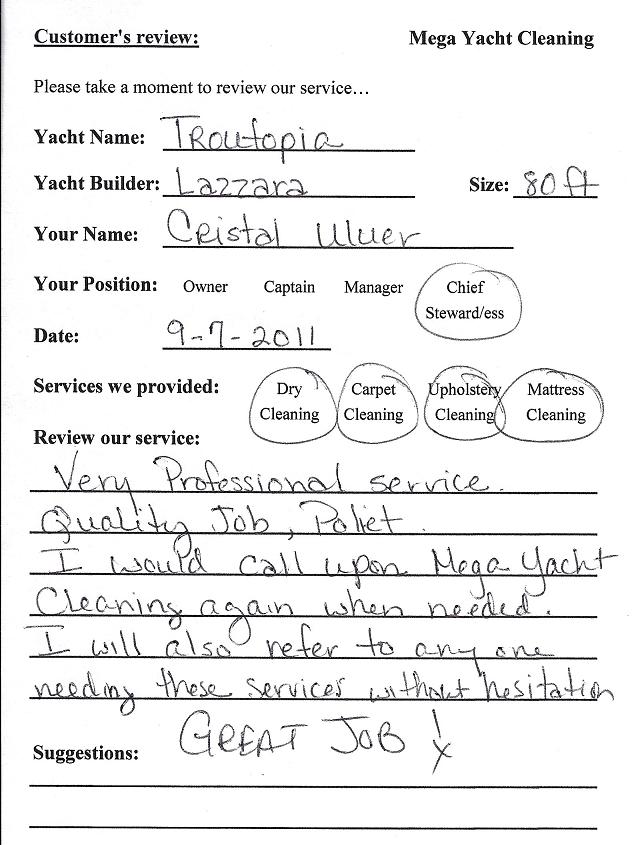 Customer's review: Mega Yacht Cleaning
Please take a moment to review our service…
Yacht Name: Troutopia
Yacht Builder: Lazzara Size: 80ft
Your Name: Cristal Uluer
Your Position: Owner Captain Manager Chief Steward/ess
Date: 9-7-2011
Services we provided: Dry Cleaning Carpet Cleaning Upholstery Cleaning Mattress Cleaning
Review our service:
Very Professional service.
Quality Job, Poliet.
I would call upon Mega Yacht
Cleaning again when needed.
I will also refer to any one
needing these services without hesitation
Suggestions: GREAT JOB !